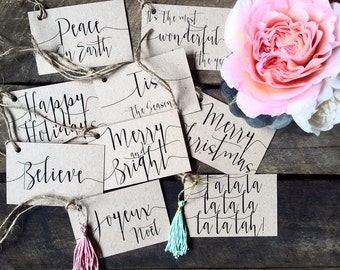 Peace
on Earth
It's the most
wonderful
the ye
Happy
Holidays
Tis
The Season
Merry
and
Bright
Merry
Christmas
Believe
Joyeux
Noël
la la
la la la
la la lah!